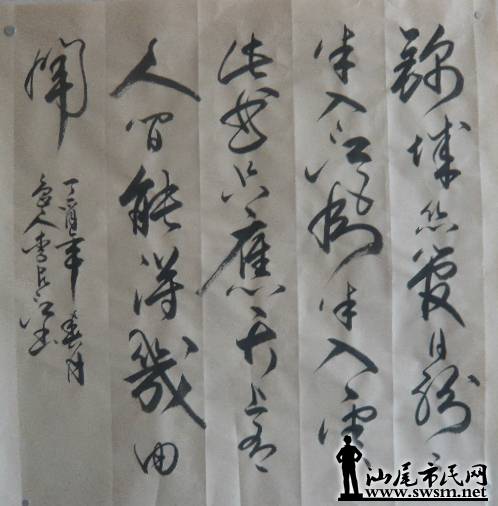 錦城丝管日紛紛
半入江风半入雲
此曲只應天上有
人间能得幾回
闻
丁酉年春月
人李长江书
汕尾市民网
www.swsm.net